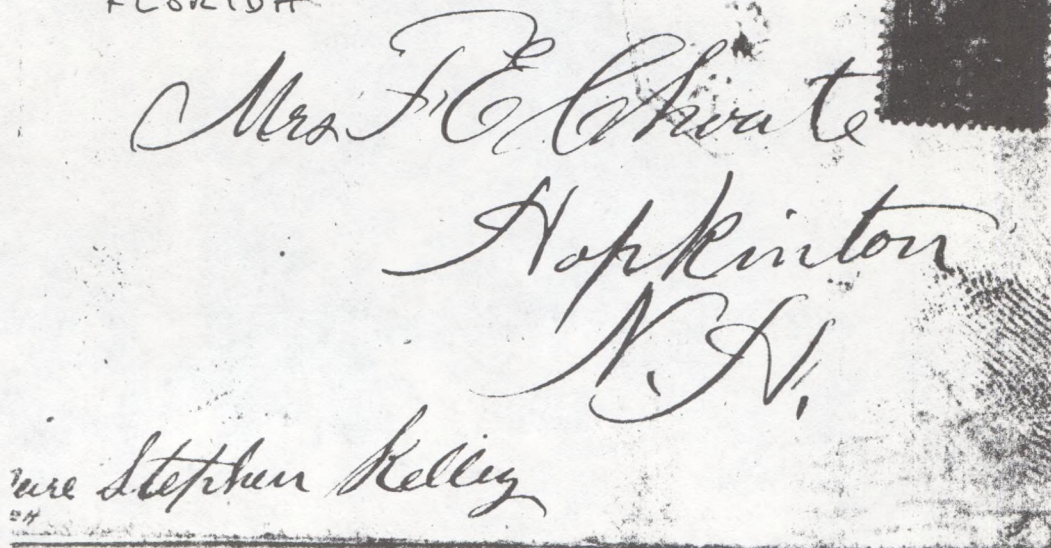 FLORIDA
Mrs F. E. Choate
Hopkinton
N. H.
Stephen Kelley